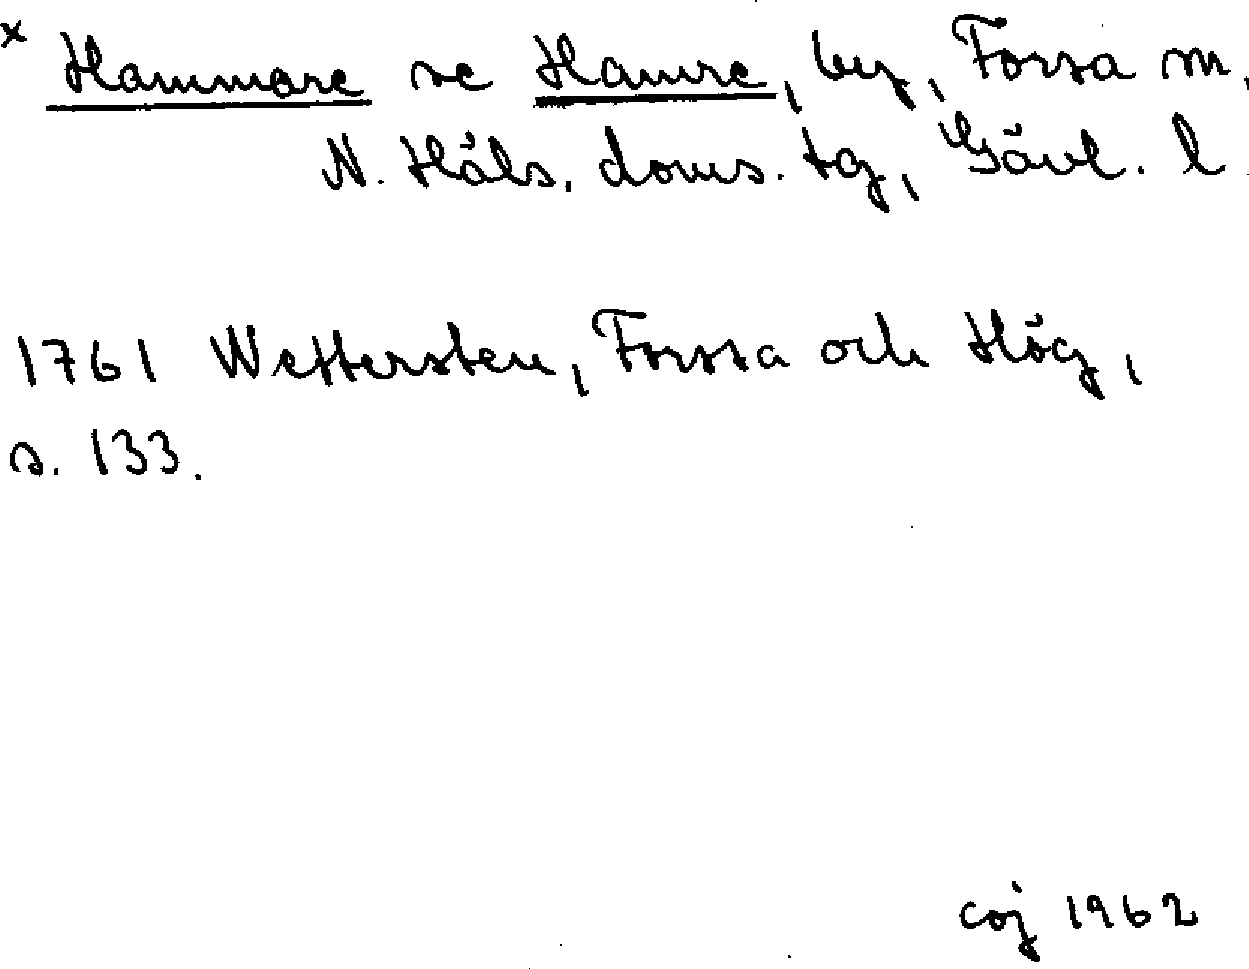 x Hammare se Hamre, by, Forsa sn,
N. Häls. doms. tg, Gävl. l.
1761 Wettersten, Forssa och Hög,
s. 133.
coj 1962